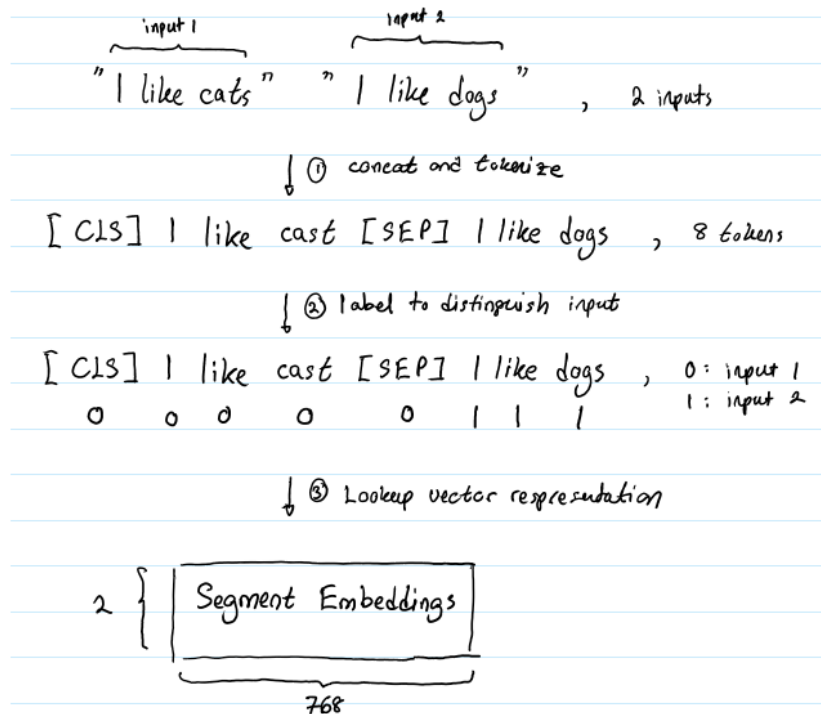 input 1 input 2
"I like cats" " I like dogs " , 2 inputs
① concat and tokenize
[CLS] I like cast [SEP] I like dogs , 8 tokens
② label to distinguish input
[CLS] I like cast [SEP] I like dogs , 0 : input 1
0 0 0 0 0 1 1 1 1 : input 2
③ Lookup vector respresentation
2 { Segment Embeddings
768